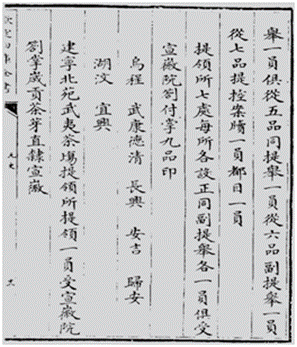 舉一員俱從五品同提舉一員從六品副提舉一員
從七品提控案牘一員都目一員
提領所七處每所各設正同副提舉各一員俱受
宣徽院劄付掌九品印
烏程 武康德清 長興 安吉 歸安
湖汶 宜興
建寧北苑武夷茶場提領所提領一員受宣徽院
劄掌歲貢茶芽直隸宣徽
元史